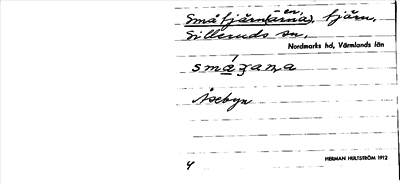 -en,
Småtjärn(arna), tjärn,
Silleruds sn,
Nordmarks hd, Värmlands län
Åsebyn
HERMAN HULTSTRÖM 1912
4